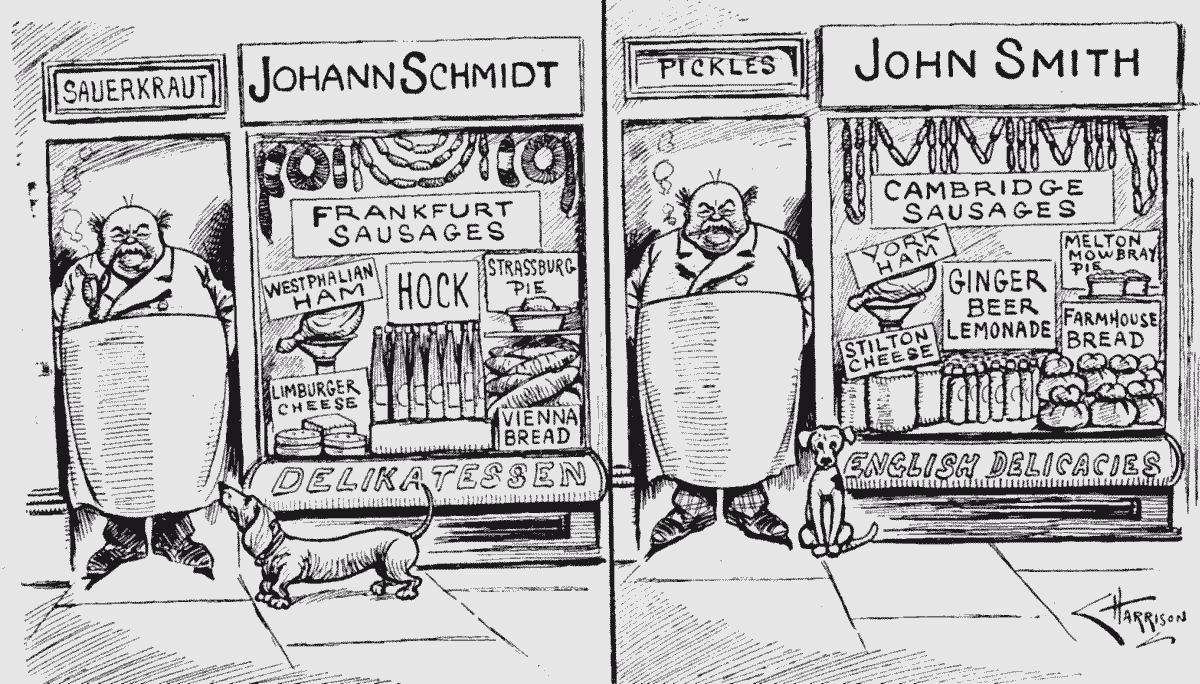 SAUERKRAUT
JOHANN SCHMIDT
FRANKFURT
SAUSAGES
WESTPHALIAN
HAM
HOCK
STRASSBURG
PIE
LIMBURGER
CHEESE
VIENNA
BREAD
DELIKATESSEN
PICKLES
JOHN SMITH
CAMBRIDGE
SAUSAGES
YORK
HAM
GINGER
BEER
LEMONADE
MELTON
MOWBRAY
PIE
STILTON
CHEESE
FARMHOUSE
BREAD
ENGLISH DELICACIES
HARRISON